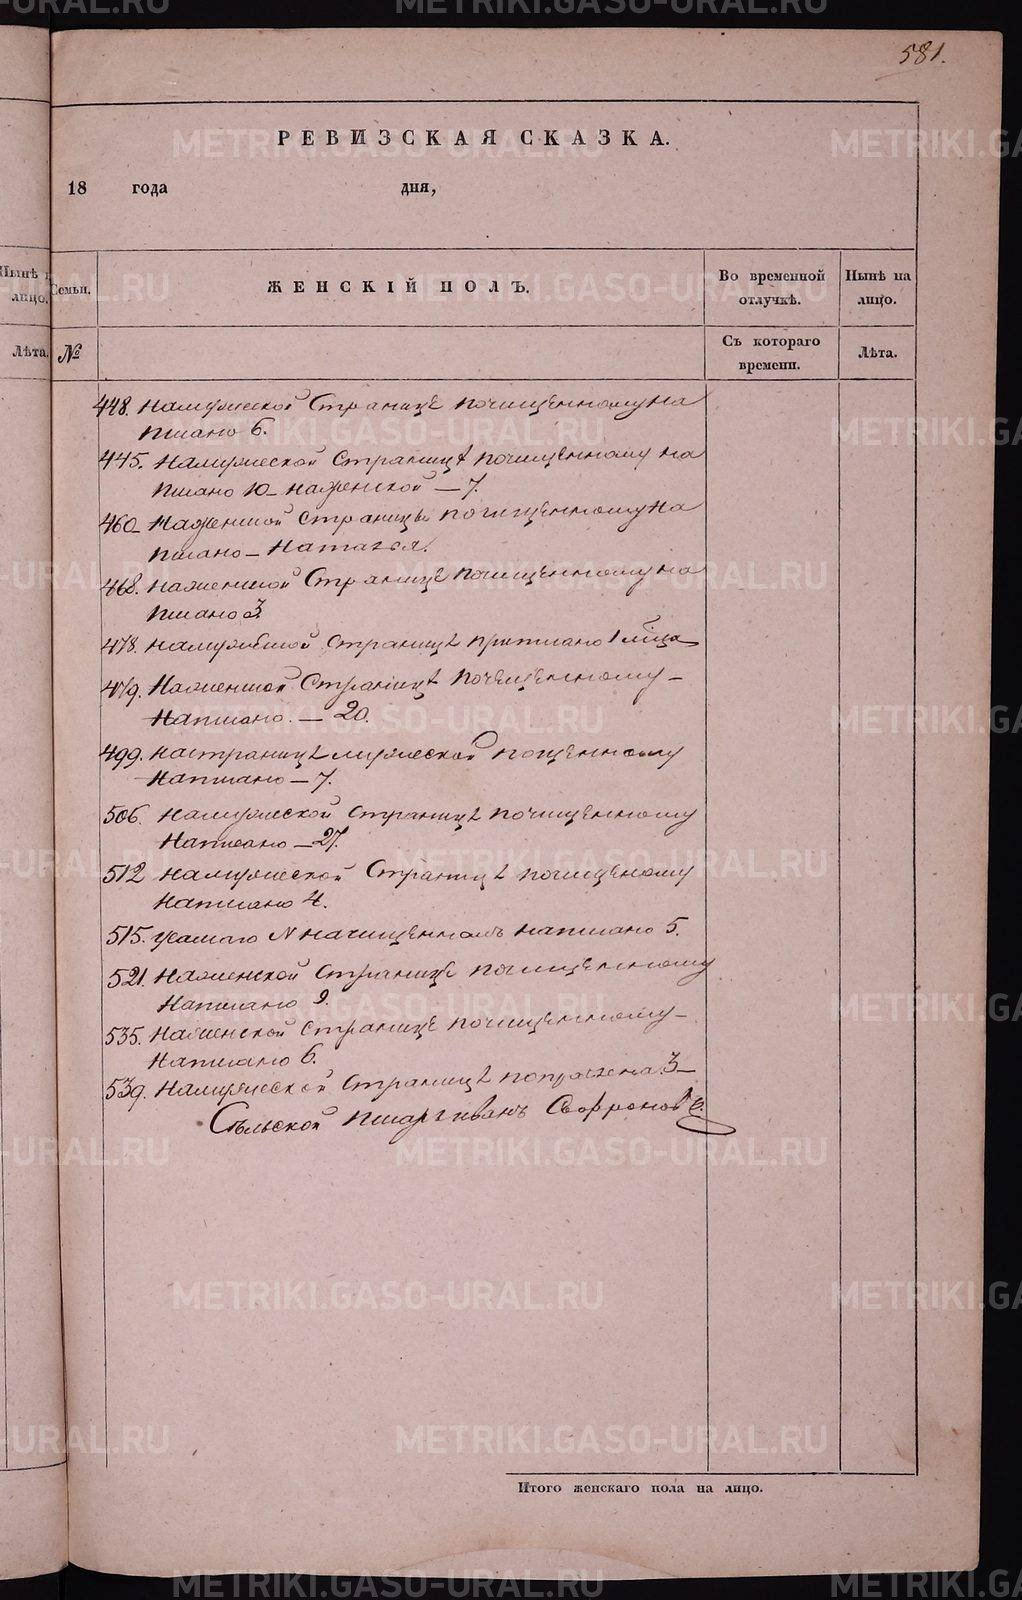 581.
РЕВИЗСКАЯ СКАЗКА.
18 года дня,
Нынѣ
лицо.
Семьи.
ЖЕНСКІЙ ПОЛЪ.
Во временной отлучкѣ.
Нынѣ на лицо.
Лѣта.
№
Съ котораго времени.
Лѣта.
448. на мужеской Странице почищенному на
писано 6.
445. На мужеской Страницѣ почищенному на
писано 10 – на женской – 7.
460 На женской страницы почищенному на
писано – Наталья.
468. на женской Странице почищенному на
писано 3.
478. на мужеской страницѣ приписано 1 лица
479. На женской Страницѣ почещенному –
Написано. – 20.
499. на страницѣ мужеской пощенному
Написано – 7.
506. на мужеской страницѣ почищенному
Написано – 27.
512 на мужеской Страницѣ почищеному
написано 4.
515. у самаго N на чищенномъ написано 5.
521. На женской странице почищенному
Написано 9.
535. На женской странице почищенному –
написано 6.
539. На мужеской страницѣ поправлена 3 –
Сельской писарь Иванъ Софроновъ
Итого женскаго пола на лицо.
METRIKI.GASO-URAL.RU